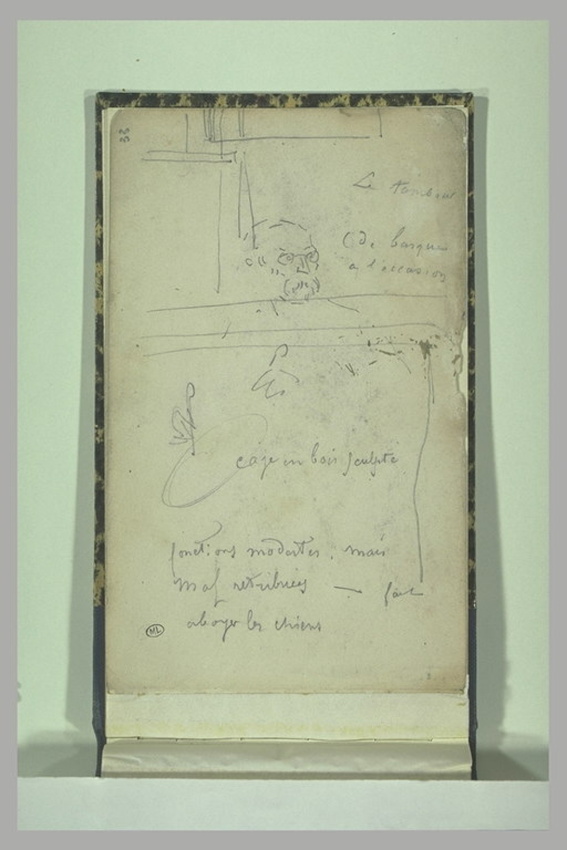 33
Le tambour
(de basque
a l'occasion
cage en bois sculpté
fonctions modestes, mais
mal retribuées — fait
aboyer les chiens
ML